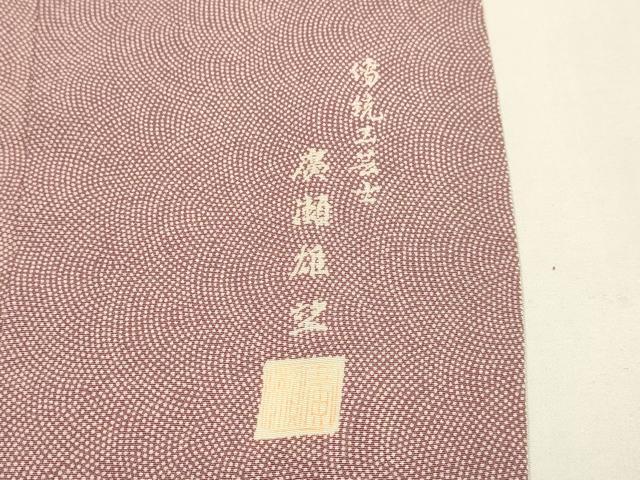 傳統工芸士
廣瀬雄望